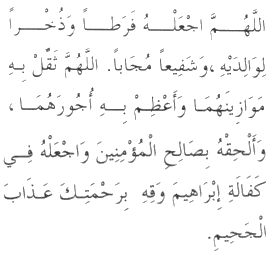 اللَّهُمَّ اجْعَلْهُ فَرَطاً وَذُخْراً
لِوَالِدَيْهِ ،وَشَفِيعاً مُجَاباً. اللَّهُمَّ ثَقِّلْ بِهِ
مَوَازِينَهُمَا وَأَعْظِمْ بِهِ أُجُورَهُمَا ،
وَأَلْحِقْهُ بِصَالِحِ الْمُؤْمِنِينَ وَاجْعَلْهُ فِي
كَفَالَةِ إِبْرَاهِيمَ وَقِهِ بِرَحْمَتِكَ عَذَابَ
الْجَحِيمِ.